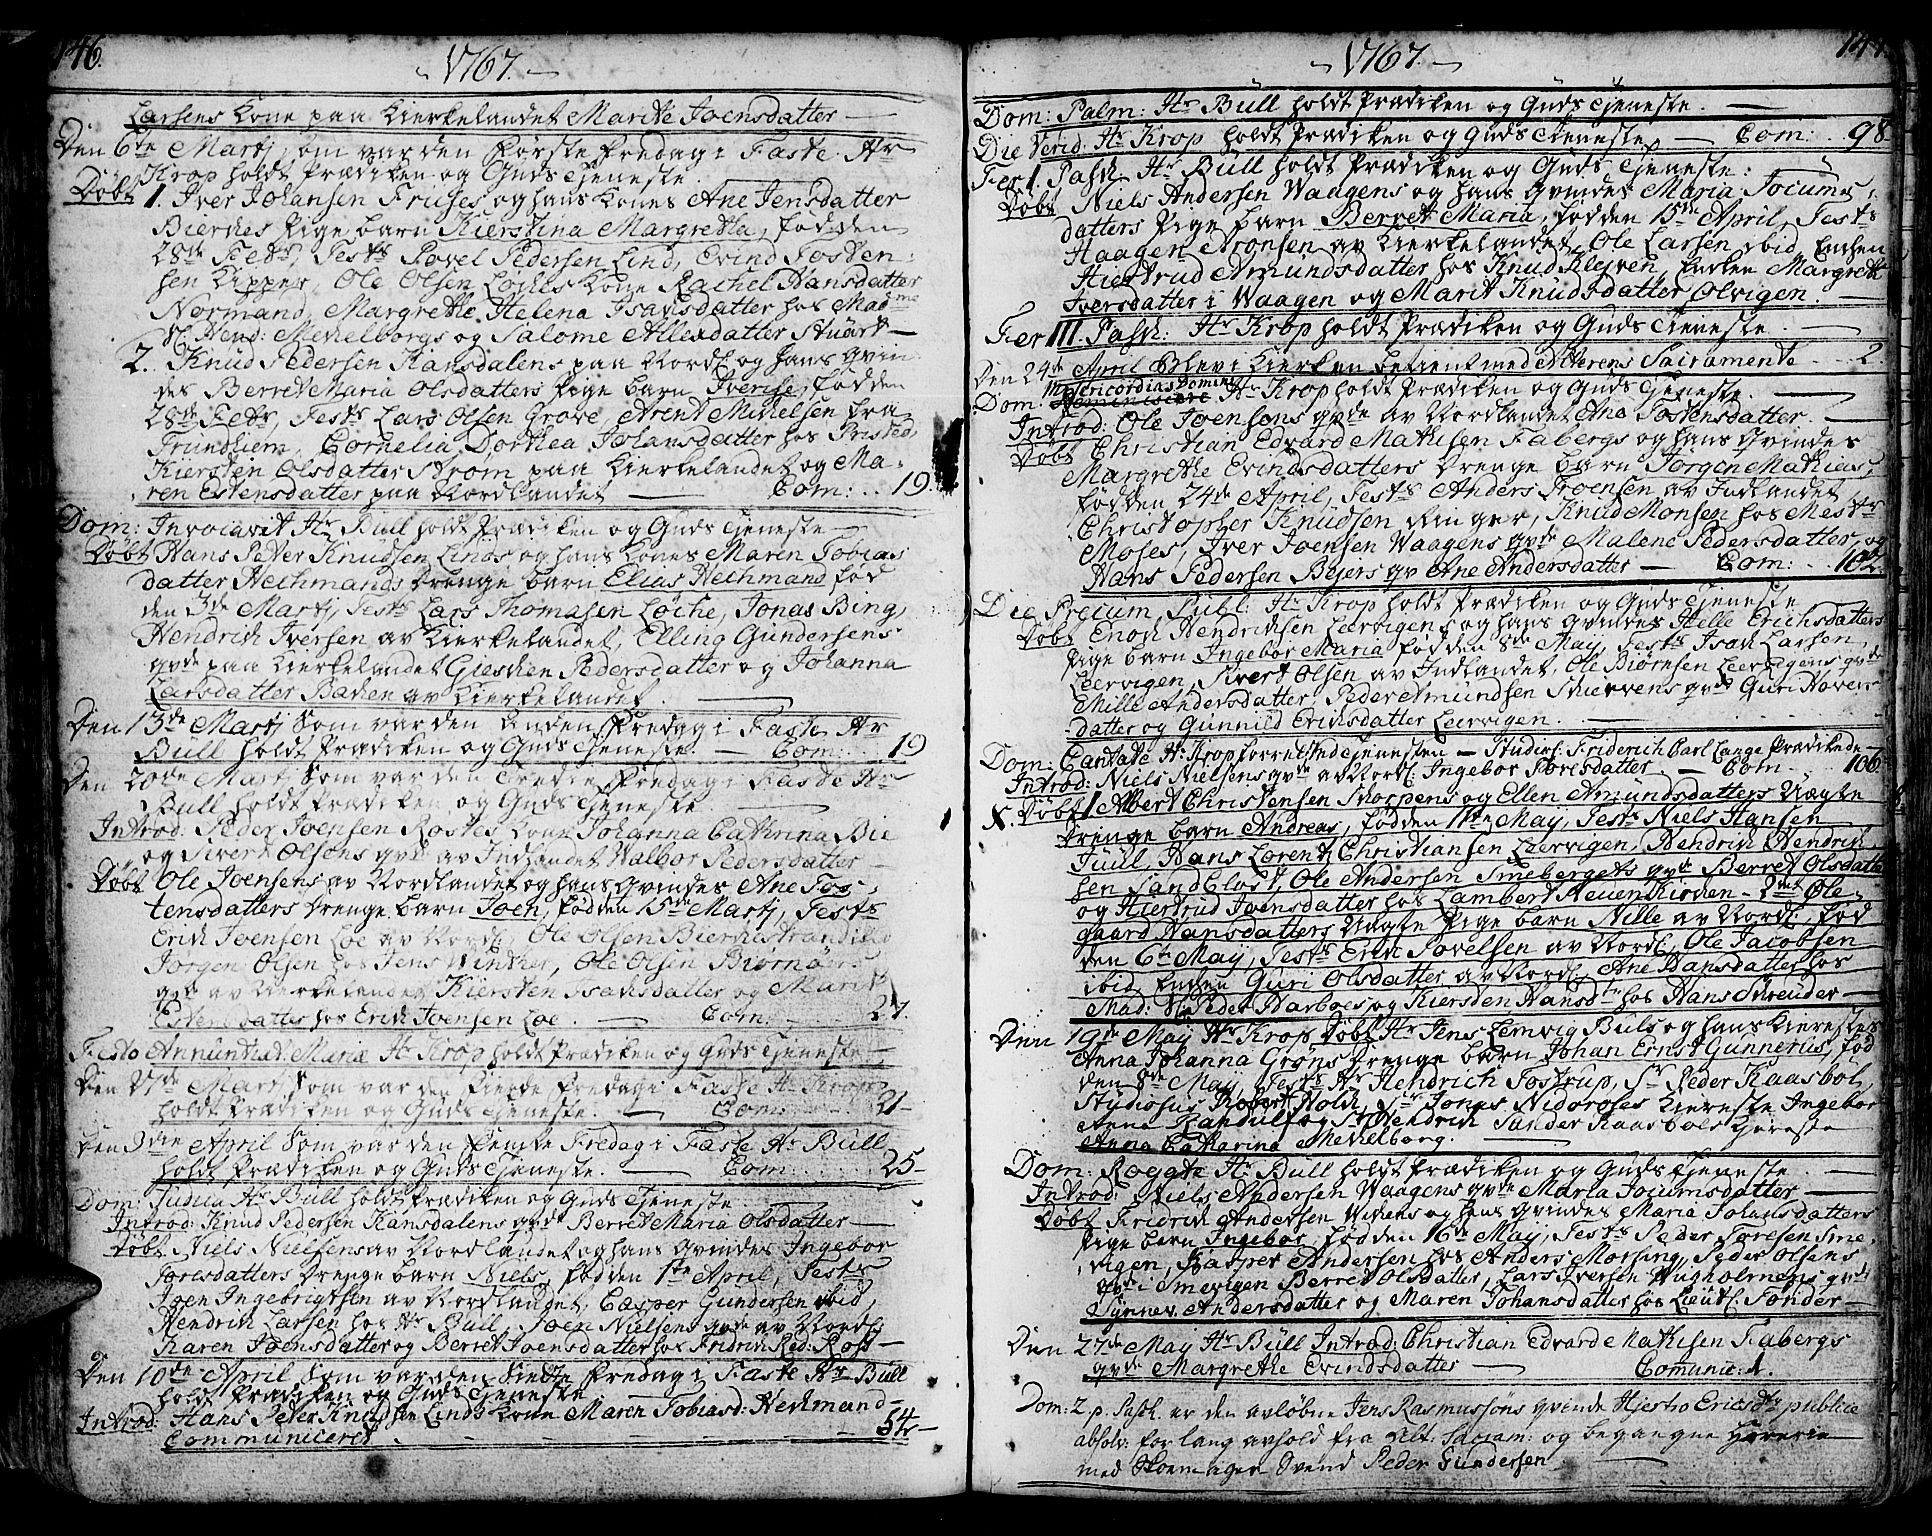 146.
1767.
Larsens Kone paa Kierkelandet Marite Joensdatter
Den 6te Martj, som var den første Fredag i Faste Hr
Krop holdt Prædiken og Guds Tjeneste
Døbt 1. Iver Johansen Friises og hans Kones Ane Jensdatter
Bierches Pige barn Kierstina Margretha, fød den
28de Febr, Tests Povel Pedersen Lind, Evind Tosten:
sen Kipper, Ole Olsen Løches Kone Rachel Hansdatter
Normand, Margrethe Helena Isachsdatter hos Madme
Sl. Hend: Mechelborgs og Salome Allexdatter Stuart
2. Knud Pedersen Hansdalens paa Nordl og hans Qvin
des Berret Maria Olsdatters Pige barn Iverise, fød den
28de Febr, Tests Lars Olsen Grove, Arent Michelsen fra
Trundhiem, Cornelia Dorthea Johansdatter hos Prssted,
Kiersten Olsdatter Strom paa Kierkelandet og Ma:
ren Estensdatter paa Nordlandet Com: .. 19.
Dom: Invocavit Hr Bull holdt Prædiken og Guds Tjeneste
Døbt Hans Peter Knudsen Linds og hans Kones Maren Tobias
datter Hechmands Drenge barn Elias Hechmand fød
den 3de Martj, Tests Lars Thomasen Løche, Jonas Bing,
Hendrich Iversen av Kierkelandet, Elling Gundersens
qvde paa Kierkelandet Gieschen Pedersdatter og Johanna
Larsdatter Bachen av Kierkelandet.
Den 13de Martj som var den Anden Fredag i Faste Hr
Bull holdt Prædiken og Guds Tjeneste. Com: 19
Den 20de Martj som var den Tredie Fredag i Faste Hr
Bull holdt Prædiken og Guds Tjeneste
Introd: Peder Joensen Rostes Kone Johanna Cathrina Bie
og Sivert Olsens qvde av Indlandet Walbor Pedersdatter
Døbt Ole Joensens av Nordlandet og hans Qvindes Ane Tos:
tensdatters Drenge barn Joen, fød den 15de Martj, Tests
Erich Joensen Loe av Nordl, Ole Olsen Bierchestrand ibid
Jørgen Olsen hos Jens Winther, Ole Olsen Biørnøer
qvde av Kierkelandet Kiersten Isachsdatter og Marit
Estensdatter hos Erich Joensen Loe Com: 27.
Festo Annuntiat: Mariæ Hr Krop holdt Prædiken og Guds Tjeneste
Den 27de Martj som var den Fierde Fredag i Faste Hr Krop
holdt Prædiken og Guds Tjeneste. Com: 21
Den 3die April som var den Femte Fredag i Faste Hr Bull
holdt Prædiken og Guds Tjeneste. Com: 25
Dom: Judica Hr Bull holdt Prædiken og Guds Tjeneste
Introd: Knud Pedersen Hansdalens qvde Berret Maria Olsdatter
Døbt Niels Nielsens av Nordlandet og hans Qvindes Ingebor
Toresdatters Drenge barn Niels, fød den 1ste April, Tests
Joen Ingebrigtsen av Nordlandet, Casper Gundersen ibid,
Hendrich Larsen hos Hr Bull, Joen Nielsens qvde av Nordl
Karen Joensdatter og Berret Joensdatter hos Fridrich Red: Rost
Den 10de April som var den Siette Fredag i Faste Hr Bull
holdt Prædiken og Guds Tjeneste
Introd: Hans Peter Knudsen Linds Kone Maren Tobiasd: Hechmand
Communiceret 54
147.
1767.
Dom: Palm: Hr Bull holdt Prædiken og Guds Tjeneste.
Die Virid: Hr Krop holdt Prædiken og Guds Tjeneste Com: 98
Fer I. Pasch Hr Bull holdt Prædiken og Guds Tjeneste:
Døbt Niels Andersen Waagens og hans Qvindes Maria Jocums:
datters Pige barn Berret Maria, fød den 15de April, Tests
Haagen Aronsen av Kierkelandet, Ole Larsen ibid, Enchen
Hiertrud Amundsdatter hos Knud Kleven, Enchen Margrethe
Iversdatter i Waagen og Marit Knudsdatter Olvigen.
Fer III. Pasch: Hr Krop holdt Prædiken og Guds Tjeneste.
Den 24de April blev i Kierken betient med Alterens Sacramente 2
Misericordias Domini
Dom: Reminiscere Hr Krop holdt Prædiken og Guds Tjeneste
Introd: Ole Joensens qvde av Nordlandet Ane Tostensdatter.
Døbt Christian Edvard Mathisen Fabergs og hans Qvindes
Margrethe Evindsdatters Drenge barn Jørgen Mathias,
fød den 24de April, Tests Anders Troensen av Indlandet
Christopher Knudsen Ringer, Knud Monsen hos Mestr
Moses, Iver Joensen Waagens qvde Malene Pedersdatter, og
Hans Pedersen Bejers qv Ane Andersdatter Com: 102.
Die Precium Publ: Hr Krop holdt Prædiken og Guds Tjeneste
Døbt Enoch Hendrichsen Leervigens og hans Qvindes Helle Erichsdatters
Pige barn Ingebor Maria fød den 8de May, Tests Isach Larsen
Leervigen, Sivert Olsen av Indlandet, Ole Biørnsen Leervigens qvde
Mille Andersdatter, Peder Amundsen Schiervens qvde Guri Hovers
datter og Gunnild Erichsdatter Leervigen.
Dom: Cantate Hr Krop forrettede Tjenesten – Studios: Friderich Carl Lange Prædikede
Introd: Niels Nielsens qvde av Nordl: Ingebor Toresdatter. Com: 106.
X. Døbt 1 Albert Christensen Skorpens og Ellen Amundsdatters Uægte
Drenge barn Andreas, fød den 11te May, Tests Niels Hansen
Juul, Hans Lorentz Christiansen Leervigen, Hendrich Hendrich
sen Sandblost, Ole Andersen Smebergets qvde Berret Olsdatter
og Hiertrud Joensdatter hos Lambert Neuen Kirchen – 2det Ole
gaard Hansdatters Uægte Pige barn Nille av Nordl, fød
den 6te May, Tests Erich Povelsen av Nordl, Ole Jacobsen
ibid, Enchen Guri Olsdatter av Nordl, Ane Hansdatter hos
Mad: Sl: Peder Harboes og Kiersten Hansdtr hos Hans Skreuder
Den 19de May Hr Krop Døbt Hr Jens Lemvig Buls og hans Kierestes
Anna Johanna Grøns Drenge barn Johan Ernst Gunnerus, fød
den 8de May, Tests Hr Hendrich Tostrup, Sr Peder Kaasbøl,
Studiosus Robert Nolch, Sr Jonas Nidorosses Kiereste Ingebor
Anna Randulf og Sr Hendrich Sander Kaasbøls Kiereste
Anna Catharina Mechelborg.
Dom: Rogate Hr Bull holdt Prædiken og Guds Tjeneste
Introd: Niels Andersen Waagens qvde Maria Jocumsdatter
Døbt Fridrich Andersen Wikens og hans Qvindes Maria Johansdatters
Pige barn Ingebor, fød den 16de May, Tests Peder Toresen Sme:
vigen, Kasper Andersen hos Anders Morsing, Peder Olsens
qvde i Smevigen Berret Olsdatter, Lars Iversen Wugholmens qvde
Synnev Andersdatter og Maren Johansdatter hos Lieut: Fonder
Den 27de May Hr Bull Introd: Christian Edvard Mathisen Fabergs
qvde Margrethe Evindsdatter Comunic: 1.
Dom: 2 p. Pasch. er den avløbne Jens Rasmussøns Qvinde Hjestro Ericsdtr publice
absolv: for lang avhold fra Alt: Sacram: og begangne Horerie
med Skoemager Svend Peder Gundersen